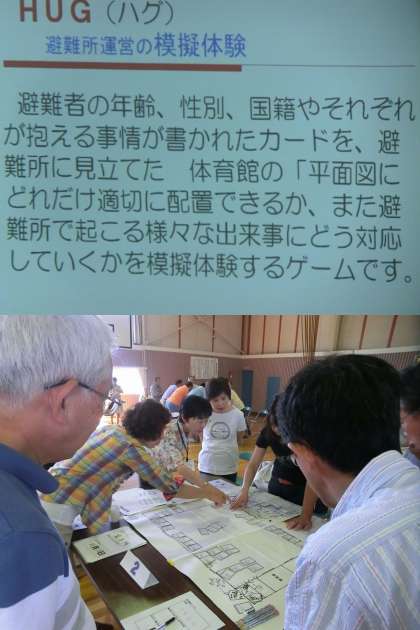 HUG（ハグ）
避難所運営の模擬体験
避難者の年齢、性別、国籍やそれぞれ
が抱える事情が書かれたカードを、避
難所に見立てた　体育館の「平面図に
どれだけ適切に配置できるか、また避
難所で起こる様々な出来事にどう対応
していくかを模擬体験するゲームです。
2